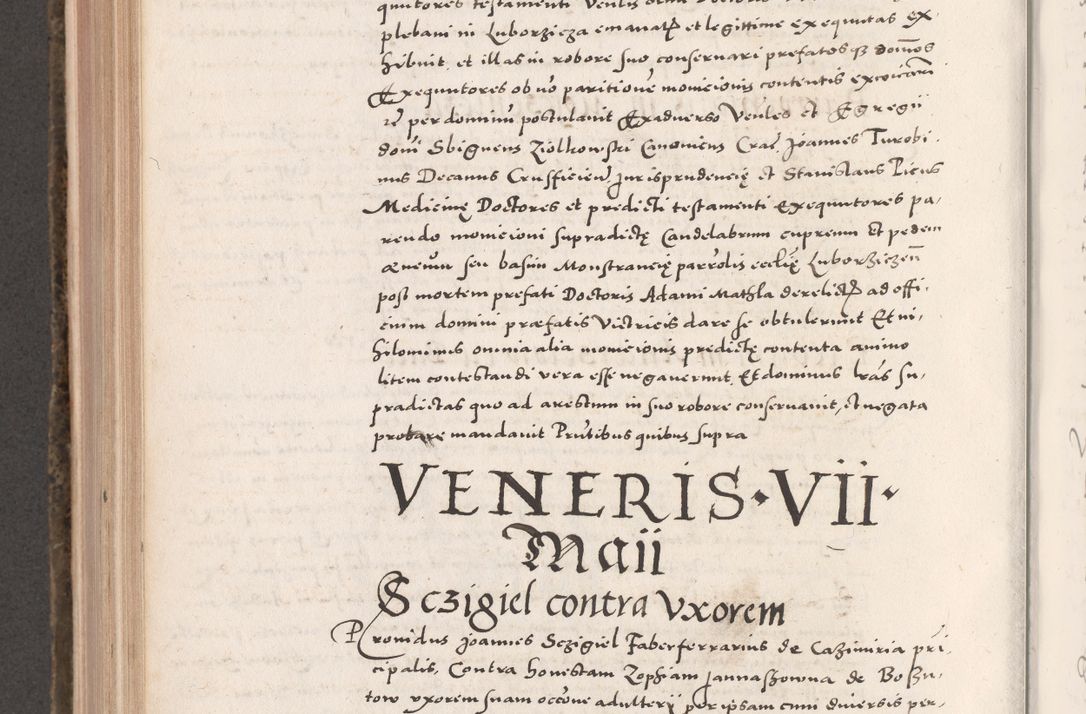 quutores testamenti Venlis
plebani in Luborzicza emanatꝝ et legittime exequutas ex-
hibuit, et illas in robore suo conservari prefatosq3 domnos
Exequutores ob nō paritionē monicionis contentis excoīcari
per dominū postulavit Exadverso Venles et Egregii
domi Sbigneus Ziolkowski Canonicus Crac̄, Joannes Turobi-
nus Decanus Crusficien̄ Jurisprudencię et Stanislaus Picus
Medicinę Doctores et predicti testamenti Exequutores pa-
rendo monicioni supradictę Candelabrum cupreum Et pedem
æneum seu basim Monstrancię parrolis ecclię Luborziczen̄
post mortem prefati Doctoris Adami Mathla derelictꝝ ad offi-
cium domini præfatis Victricis dare se obtulerunt Et ni-
hilominus omnia alia monicionis predictę contenta animo
litem contestandi vera esse negaverunt. Et dominus lrās su-
pradictas quo ad arestum in suo robore conservavit, et negata
probare mandavit Prn̄tibus quibus supra
VENERIS · VII ·
Maii
Sczigiel contra Vxorem
Providus Joannes Sczigiel Faberferrarius de Cazimiria prī-
cipalis, Contra honestam Zophiam Jannaszowna de Boszu-
tow vxorem suam occōne adulterÿ per ipsam cum diversis per-